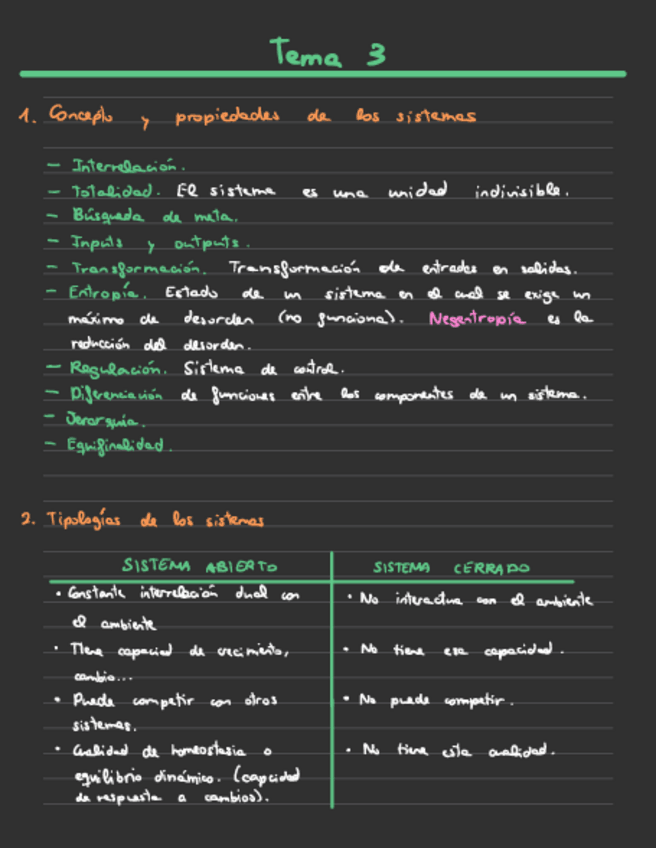 Tema 3
1. Concepto y propiedades de los sistemas
- Interrelación.
- Totalidad. El sistema es una unidad indivisible.
- Búsqueda de meta.
- Inputs y outputs.
- Transformación. Transformación de entradas en salidas.
- Entropía. Estado de un sistema en el cual se exige un
máximo de desorden (no funciona). Negentropía es la
reducción del desorden.
- Regulación. Sistema de control.
- Diferenciación de funciones entre los componentes de un sistema.
- Jerarquía.
- Equifinalidad.
2. Tipologías de los sistemas
SISTEMA ABIERTO SISTEMA CERRADO
• Constante interrelación dual con • No interactua con el ambiente
el ambiente
• Tiene capacidad de crecimiento, • No tiene esa capacidad.
cambio...
• Puede competir con otros • No puede competir.
sistemas.
• Cualidad de homeostasia o • No tiene esta cualidad.
equilibrio dinámico. (capacidad
de respuesta a cambios).